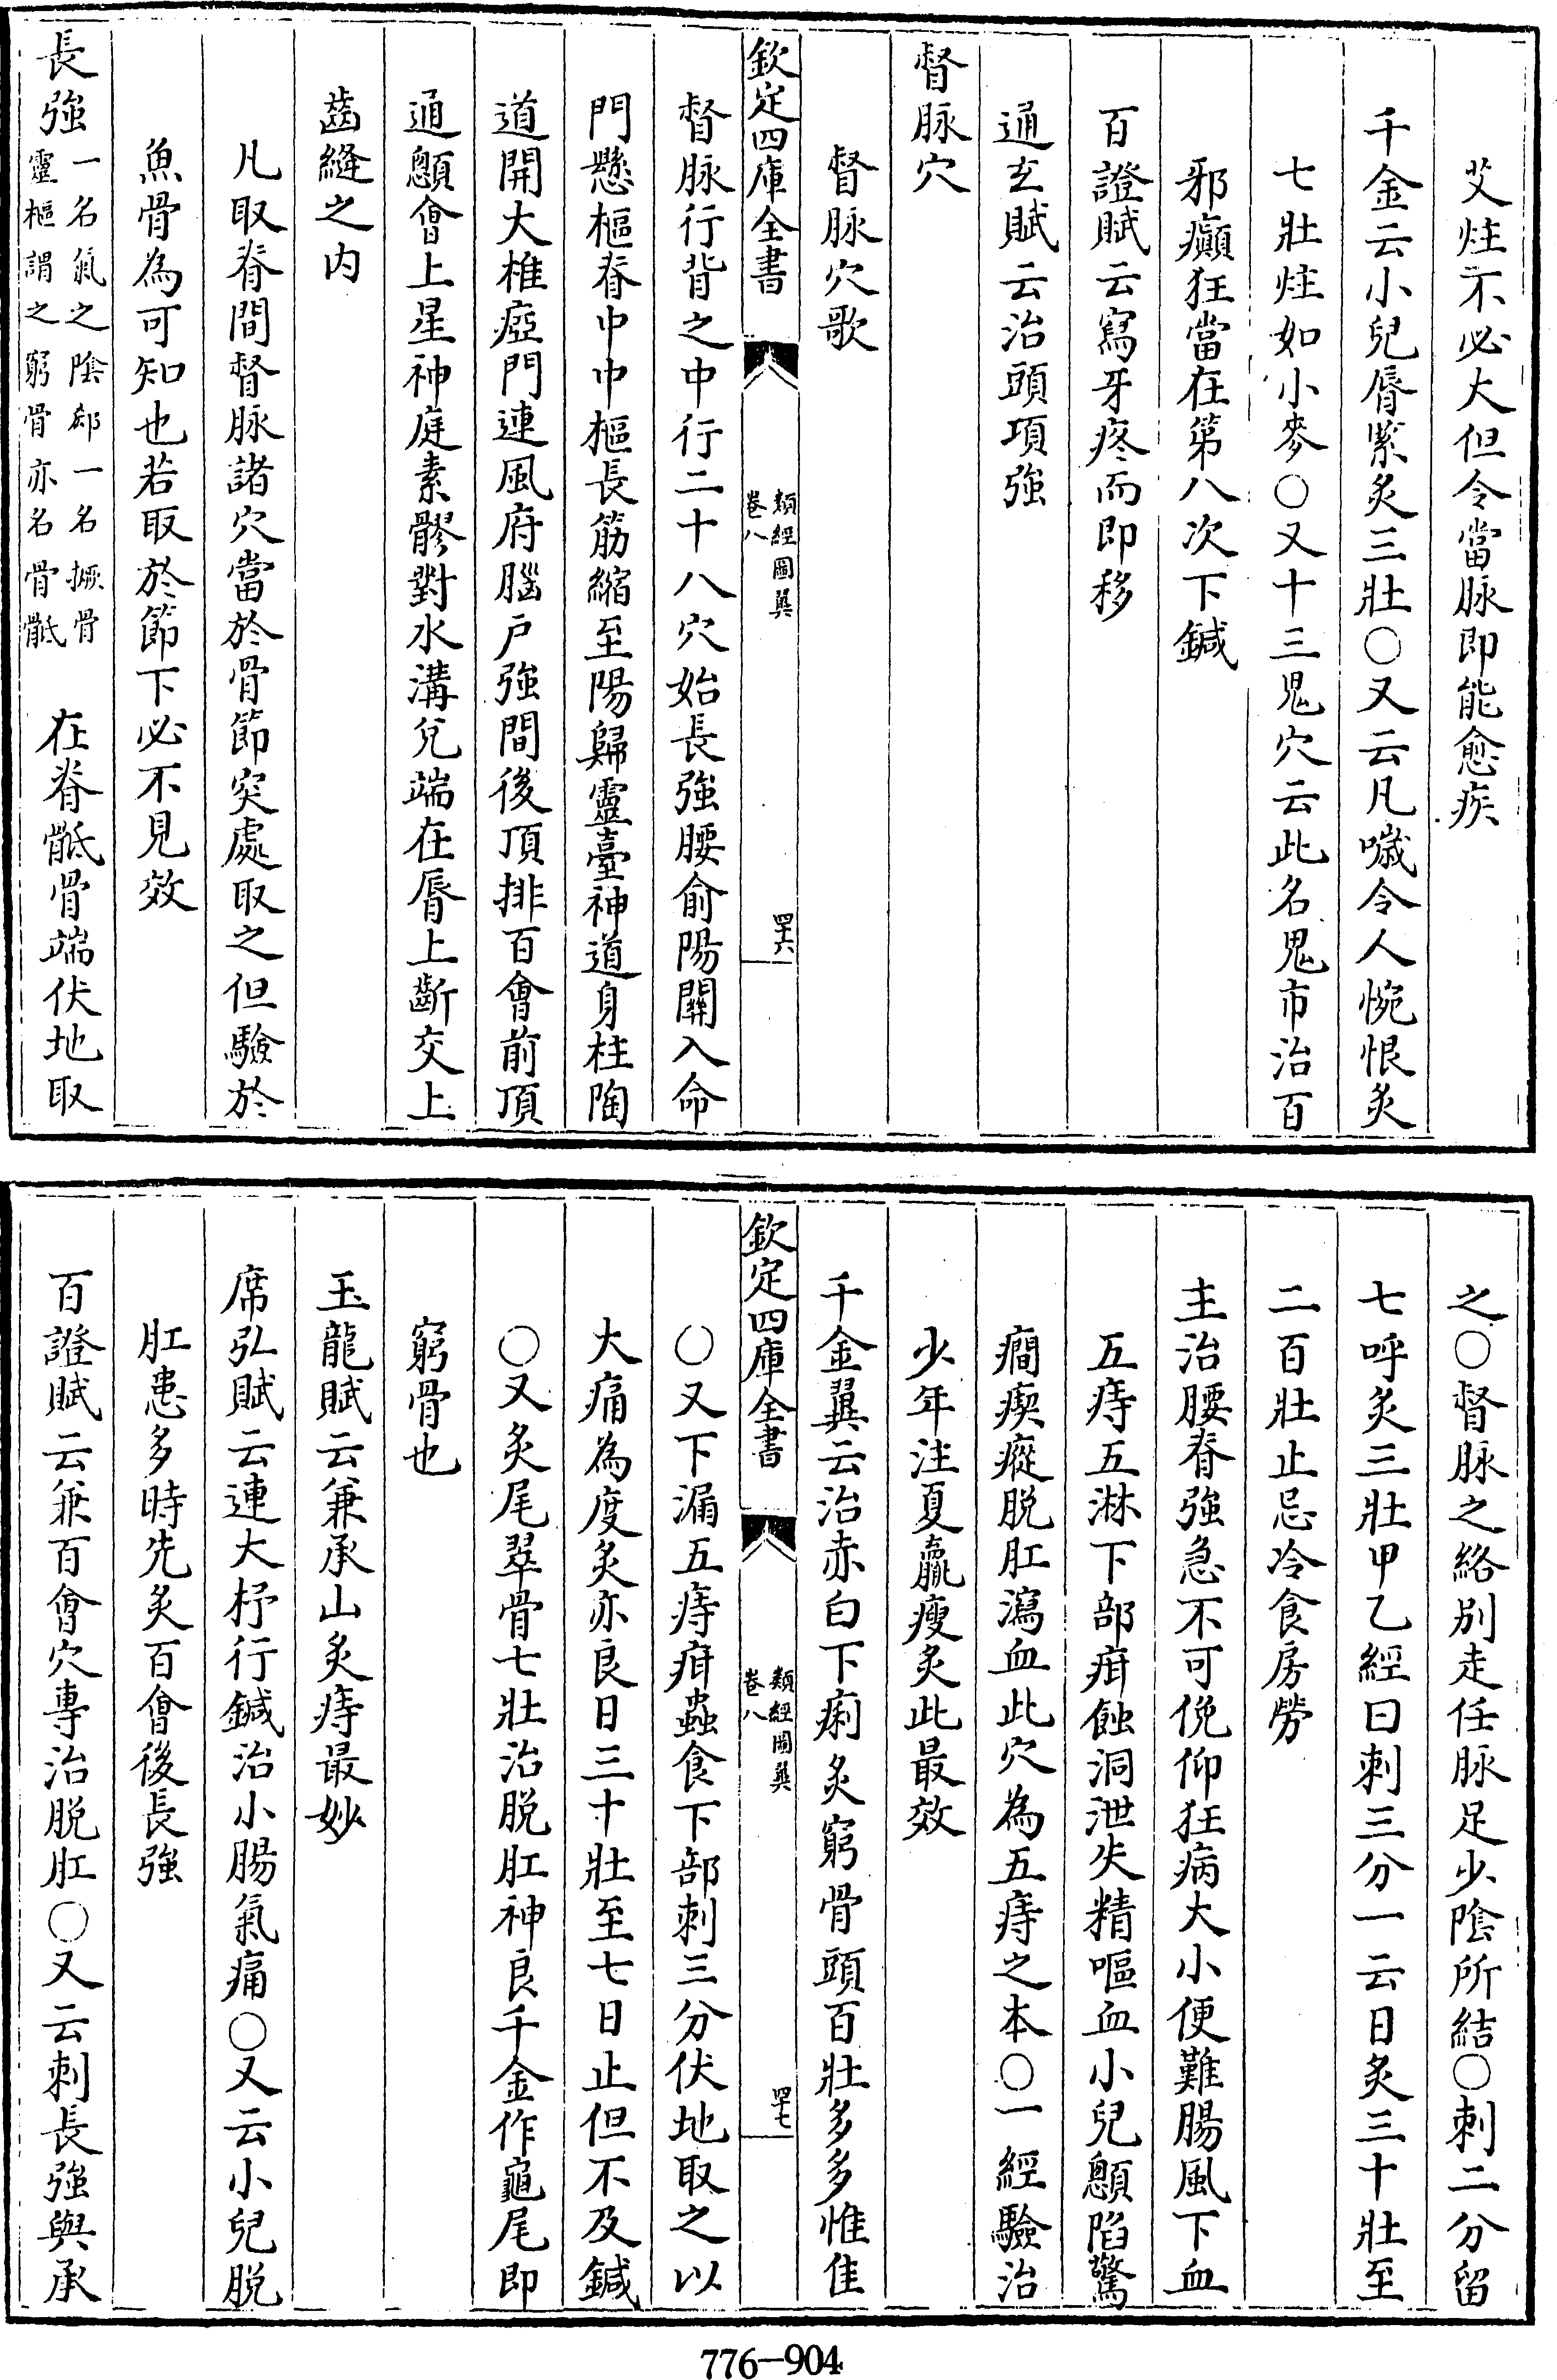 艾炷不必大但令當脉即能愈疾
千金云小兒脣緊炙三壯○又云凡噦令人惋恨炙
七壯炷如小麥○又十三鬼穴云此名鬼市治百
邪癲狂當在第八次下鍼
百證賦云寫牙疼而即移
通玄賦云治頭項強
督脉穴
督脉穴歌
欽定四庫全書
類經圖翼
卷八
四十六
督脉行背之中行二十八穴始長強腰俞陽關入命
門懸樞脊中中樞長筋縮至陽歸靈臺神道身柱陶
道開大椎瘂門連風府腦戶強間後頂排百會前頂
通顖會上星神庭素髎對水溝兌端在脣上齗交上
齒縫之内
凡取脊間督脉諸穴當於骨節突處取之但驗於
魚骨為可知也若取於節下必不見效
長強
一名氣之陰郄一名撅骨
靈樞謂之窮骨亦名骨骶
在脊骶骨端伏地取
之○督脉之絡别走任脉足少陰所結○刺二分留
七呼炙三壯甲乙經曰刺三分一云日炙三十壯至
二百壯止忌冷食房勞
主治腰脊強急不可俛仰狂病大小便難腸風下血
五痔五淋下部疳蝕洞泄失精嘔血小兒顖陷驚
癇瘈瘲脱肛瀉血此穴為五痔之本○一經驗治
少年注夏羸瘦炙此最效
千金翼云治赤白下痢炙窮骨頭百壯多多惟佳
欽定四庫全書
類經圖翼
卷八
四十七
○又下漏五痔疳蟲食下部刺三分伏地取之以
大痛為度炙亦良日三十壯至七日止但不及鍼
○又炙尾翠骨七壯治脱肛神良千金作龜尾即
窮骨也
玉龍賦云兼承山炙痔最妙
席弘賦云連大杼行鍼治小腸氣痛○又云小兒脱
肛患多時先炙百會後長強
百證賦云兼百會穴專治脱肛○又云刺長強與承
776-904